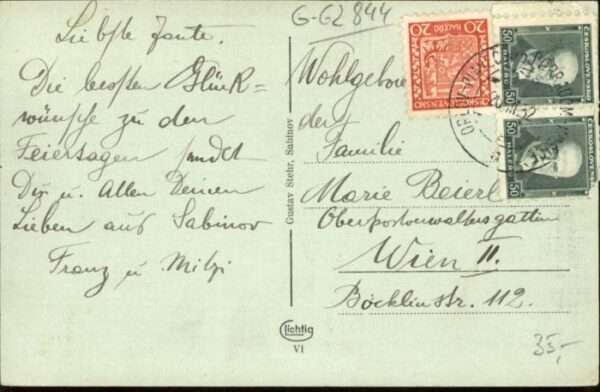 G-GZ 844
Liebste Tante.
Die besten Glück=
wünsche zu den
Feiertagen sendet
Dir u. Allen Deinen
Lieben aus Sabinov
Franz u Mitzi
Gustav Stehr, Sabinov
Lichtig
VI
20 HALÉŘŮ 20
ČESKOSLOVENSKO
50 HALÉŘŮ
ČESKOSLOVENSKO
50 HALÉŘŮ 50
Wohlgeborene
der
Familie
Marie Beierl
Oberpostverwaltersgattin
Wien II.
Böcklinstr. 112.
35,-